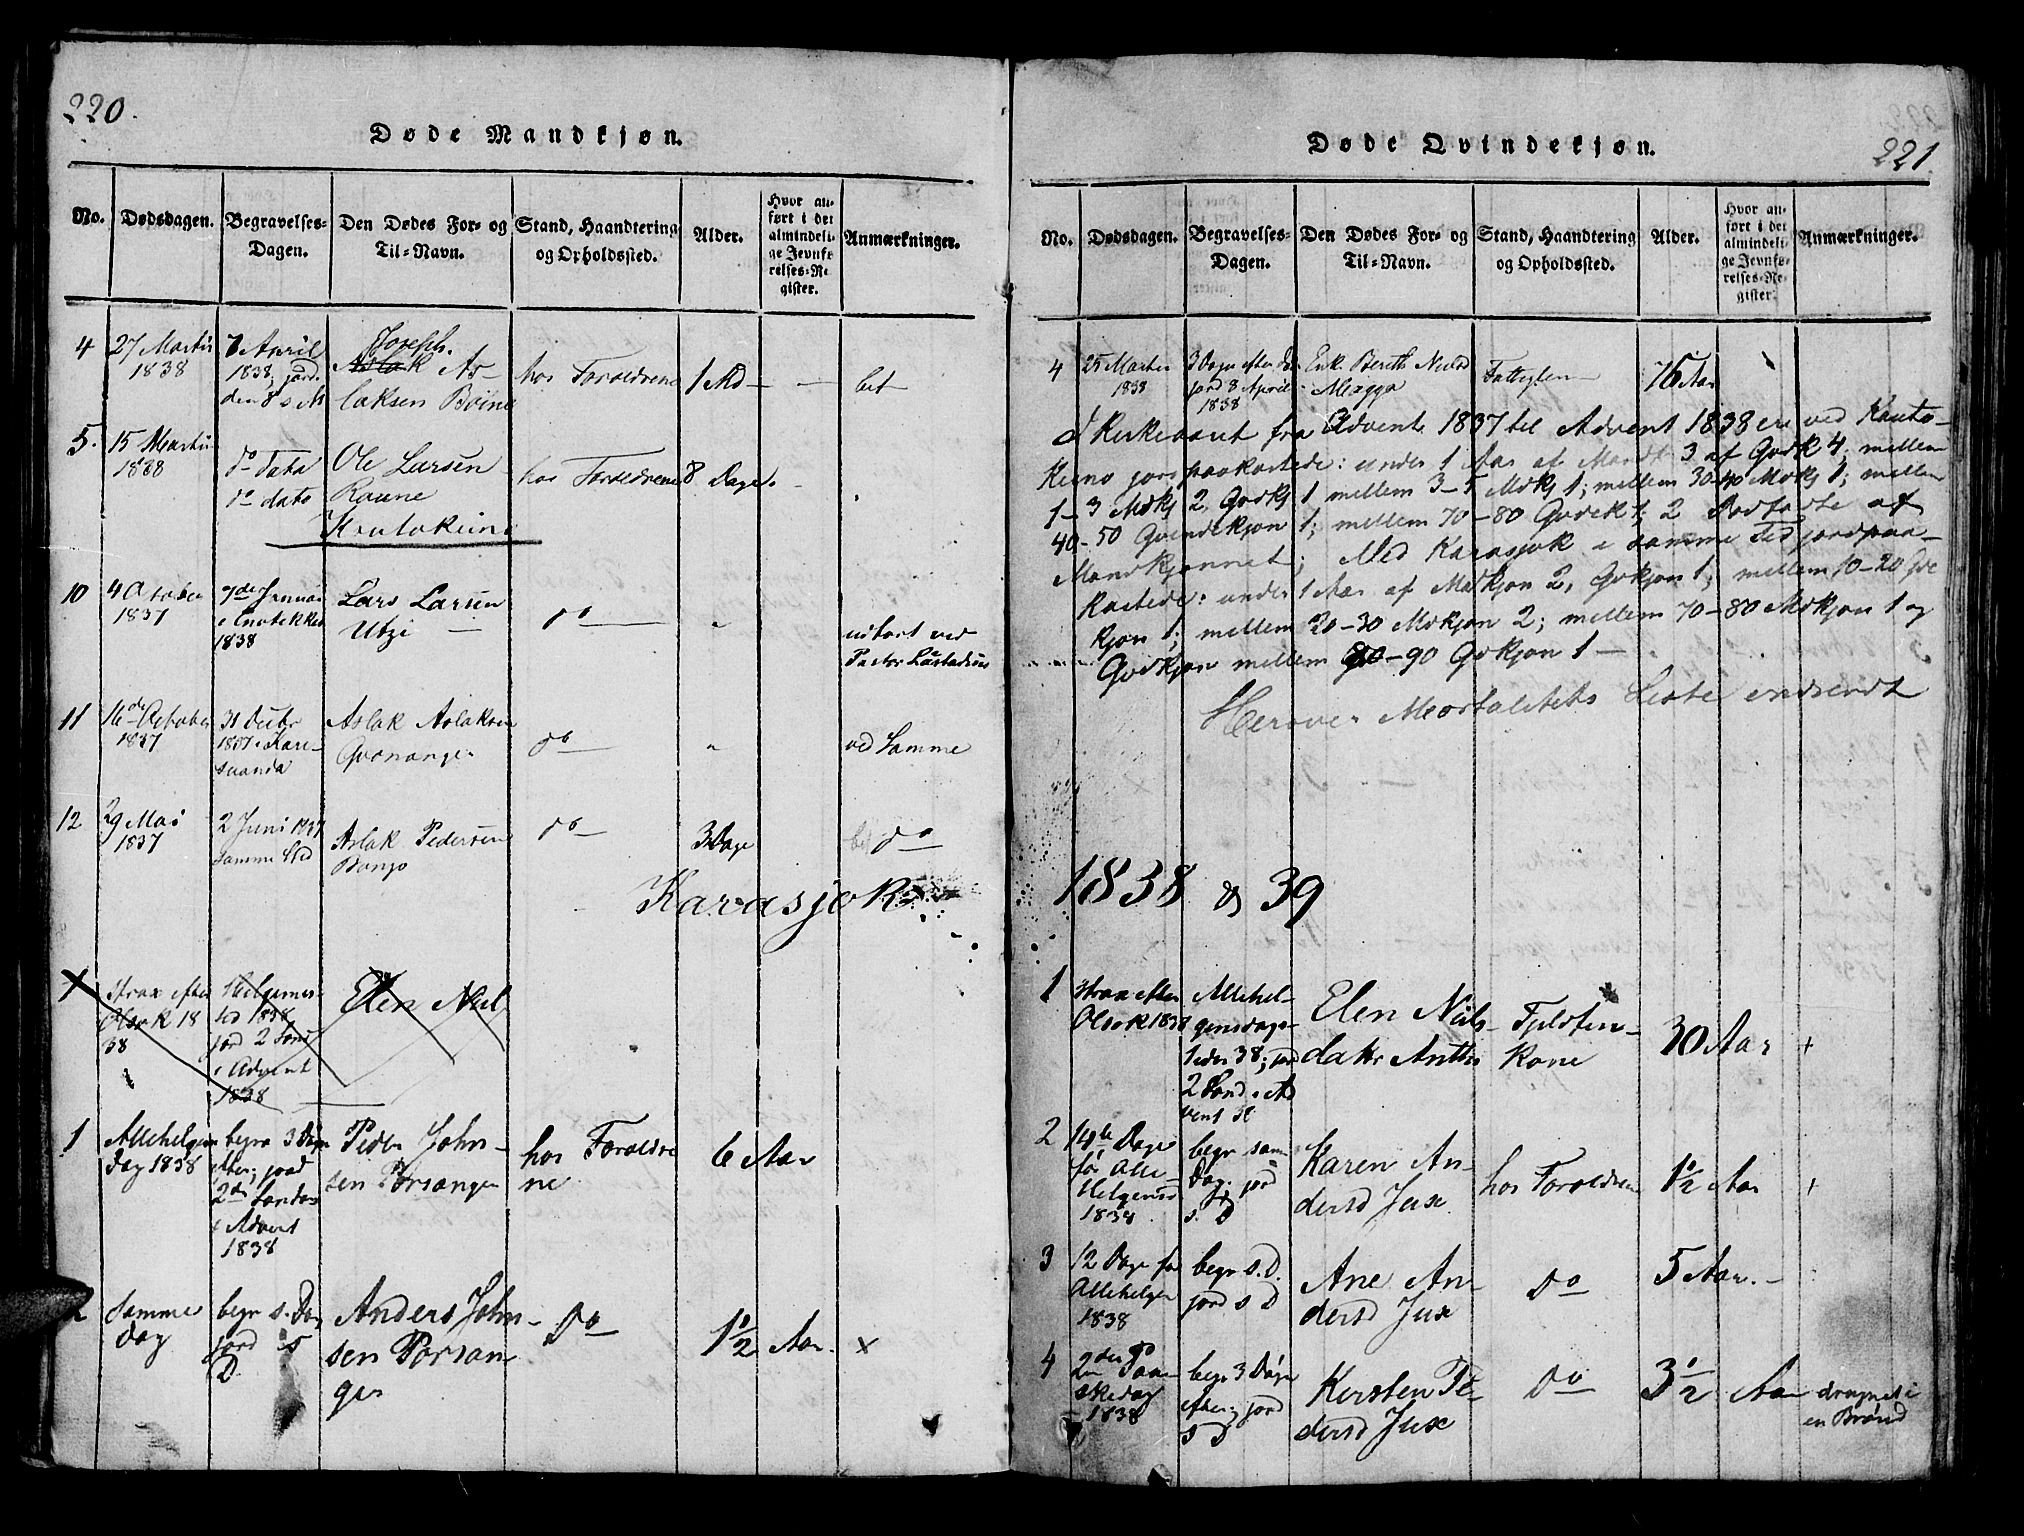 220.
Døde Mandkjøn.
No.
Dødsdagen.
Begravelses-
Dagen.
Den Dødes For- og
Til-Navn.
Stand, Haandtering
og Opholdssted.
Alder.
Hvor an-
ført i det
almindeli-
ge Jevnfø-
relses-Re-
gister.
Anmærkninger.
4
27 Martii
1838
7 April
1838, jord.
den 8 s M
Joseph
Aslak As-
laksen Boine
hos Foroldrene
1 Md
bet
5.
15 Martii
1838
do data
do dato
Ole Larsen
Roune
hos Foroldrene
8 Dage.
Koutokeino
10
4 October
1837
7de Januar
1838
Lars Larsen
Utzi
do
udført ved
Pastor Læstadius
11
16de October
1837
31 Decbr
1837 i Kare-
suanda
Aslak Aslaksen
Qvonanger
do
ved Samme
12
29 Mai
1837
2 Juni 1837
samme Sted
Aslak Pedersen
Bongo
do
3 Dage
do
Karasjok
1
strax efter
Olsok 18
38
Helgemes-
tid 1838
jord 2 Sønd
i Advent
1838
Elen Niel
1
Allehelgen
Dag 1838
begra 3 Dage
efter; jord
2den Søndag
i Advent
1838
Peder John-
sen Porsanger
hos Foroldre
ne
6 Aar
2
Samme
Dag
begr s. Dag
jord s
D.
Anders John-
sen Porsan-
ger
do
1½ Aar.
x
221
Døde Qvindekjøn.
No.
Dødsdagen.
Begravelses-
Dagen.
Den Dødes For- og
Til-Navn.
Stand, Haandtering
og Opholdssted.
Alder.
Hvor an-
ført i det
almindeli-
ge Jevnfø-
relses-Re-
gister.
Anmærkninger.
4
25 Martii
1838
3 Dage efter
jord 8 April
1838
Enk. Bereth Nielsd
Magga
Fattiglem
76 Aar
I Kirkeaaret fra Advent 1837 til Advent 1838 ere ved Kauto-
Keino jordpaakastede: under 1 Aar af Mandk 3 af Qvdk 4; mellem
1-3 Mdkj 2, Qvdkj 1 mellem 3-5 Mdkj 1; mellem 30-40 Mdkj 1; mellem
40-50 Qvindekjøn 1; mellem 70-80 Qvdek 1; 2 Dødfødte af
Mandkjønnet; Med Karasjok i samme Tid jordpaa-
kastede: under 1 Aar af Mdkjøn 2, Qvkjøn 1; mellem 10-20 Qvd
kjøn 1; mellem 20-30 Mdkjøn 2; mellem 70-80 Mdkjøn 1 og
Qvdkjøn mellem 80-90 Qvkjøn 1
Herover Mortalitets Liste indsendt
1838 & 39
1
strax efter
Olsok 1838
Allehel-
gensdags-
tider 38; jord
2 Sønd i Ad
vent
Elen Niels-
datter Anthi
Fjeldfin-
Kone
30 Aar
+
2
14de Dage
før Alle-
Helgensd
1838
begr sam
Dag. jord
s. D
Karen An-
dersd Jux
hos Foroldrene
1½ Aar
+
3
12 Dage før
Allehelgen
1838
begr s. D.
jord s D
Ane An-
dersd Jux
do
5 Aar.
4
2den Paa-
skedag
1838
begr 3 Dage
efter; jord
s D
Kirsten Pe-
dersd Jux
do
3½ Aar
drugnet i
en Brønd